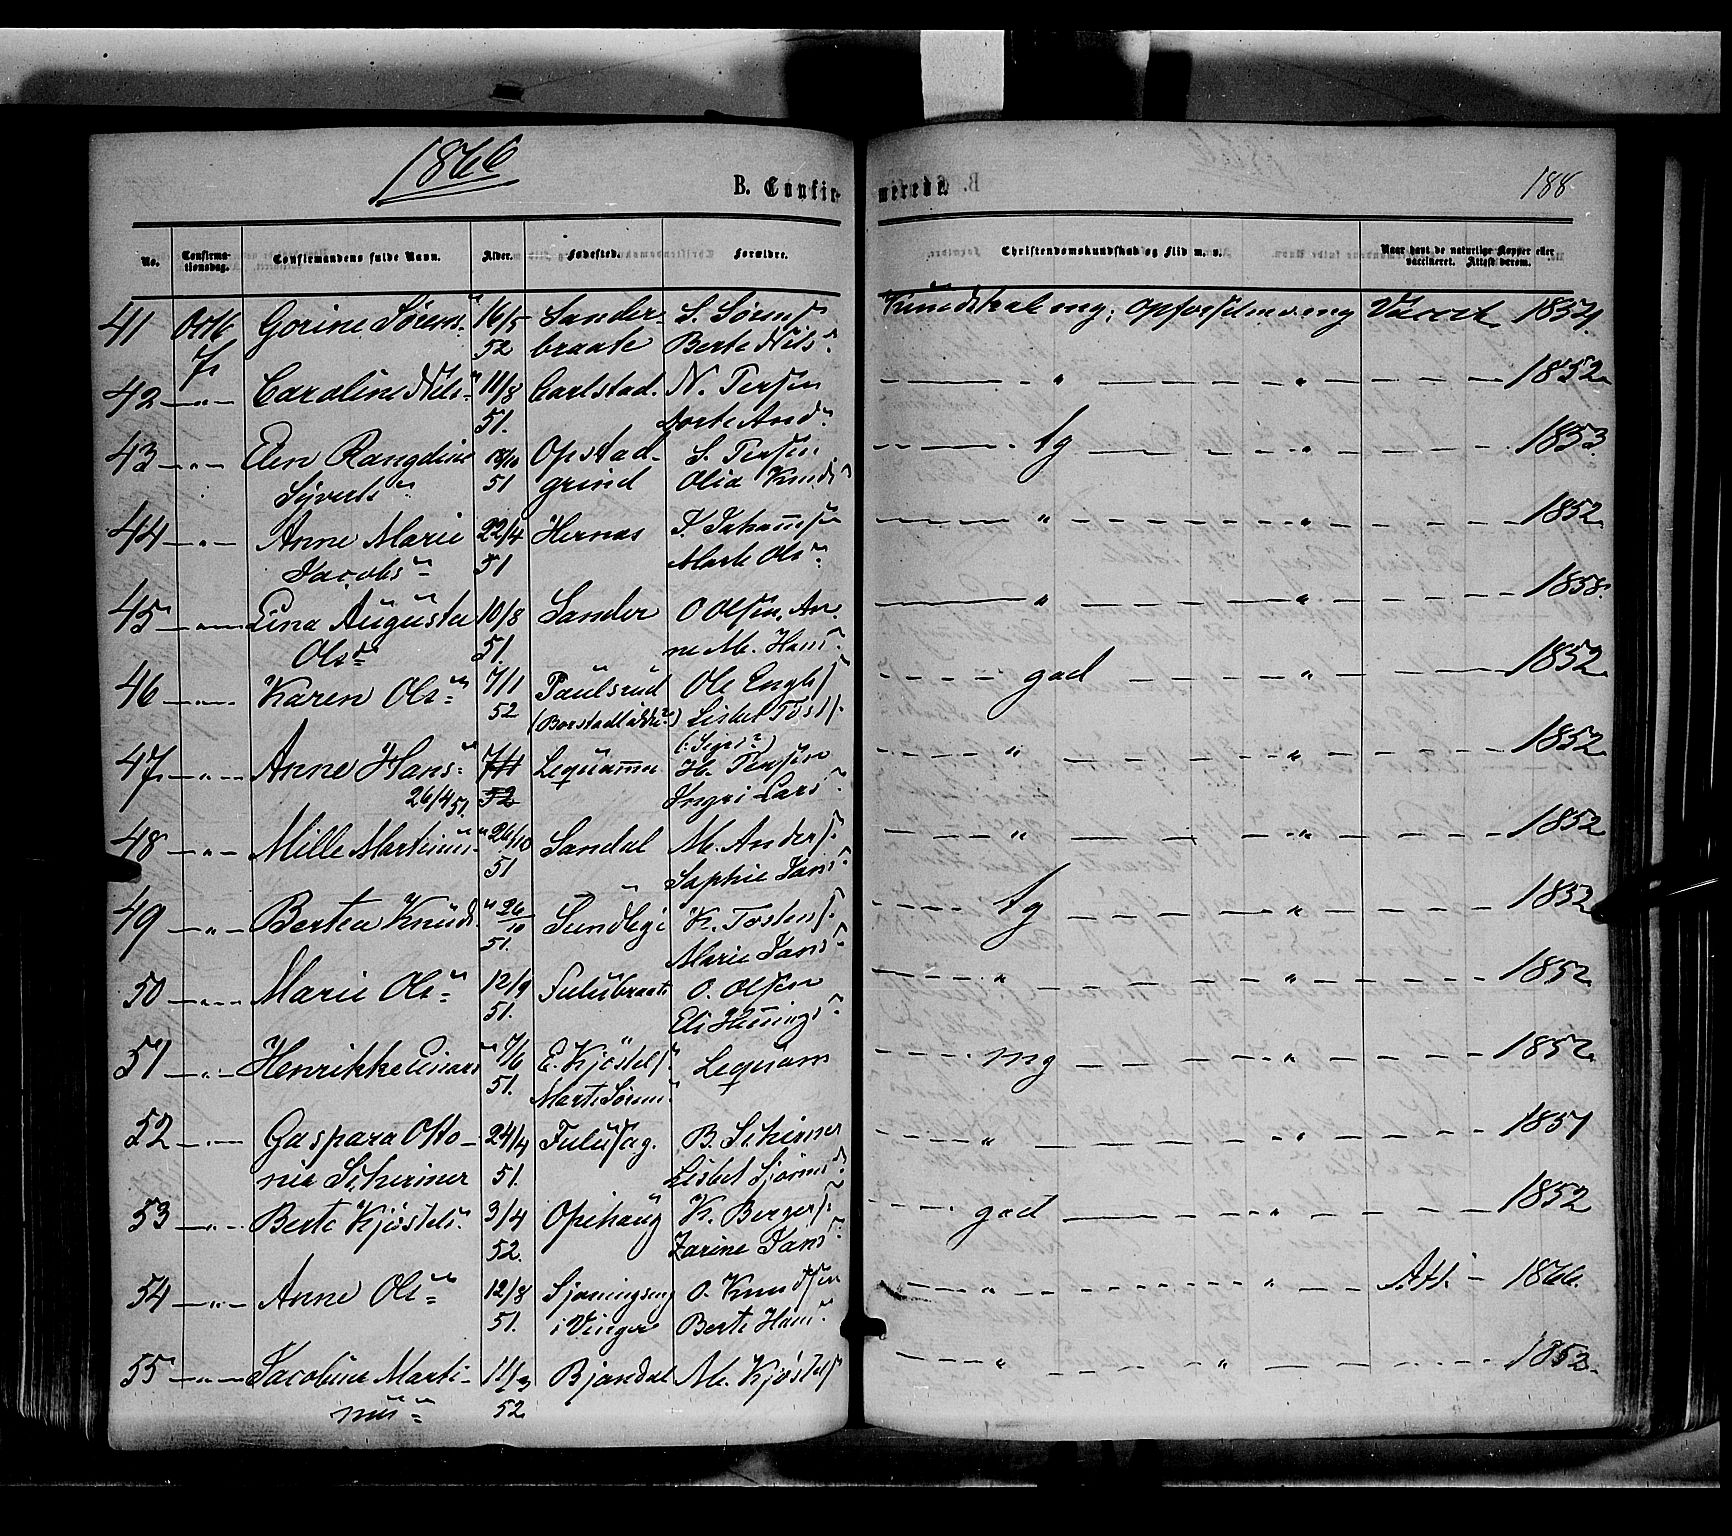 1866
B. Confirmerede.
188
No.
Confirmationsdag.
Confirmandens fulde Navn.
Alder.
Fødested.
Forældre.
Christendomskundskab og Flid m. v.
Naar havt de naturlige Kopper eller vaccineret. Attest derom.
41 Octb 7 Gorine Sørens 16/5 52 Sanderbraate S. Sørens Berte Nils Kundskab mg; Opførsel mg Vacc. 1854
42 — " — Caroline Nils 11/8 51. Carlstad. N. Persen Dorte And — " — " — 1852
43 — " — Elen Rangdine Syverts 18/10 51 Opstadgrind S. Persen Olia Knuds — tg — " — 1853
44 — " — Anne Marie Jacobs 22/4 51 Hernas J. Johannsen Marte Ols — " — " — 1852
45 — " — Lina Augusta Ols 10/8 51. Sander O Olsen, Anne M. Hans — " — " — 1858.
46 — " — Karen Ols 7/1 52 Paulsrud Ole Engb Lisbet Tost — god — " — 1852
47 — " — Anne Hans 26/4 51. 7/1 52 Lequamne H. Persen Ingri Lars — " — " — 1852
48 — " — Mille Martinus 26/10 51 Sandal M. Anders Sophie Jans — " — " — 1852
49 — " — Bertea Knuds 26/10 51. Sundlegi K. Tostens Marie Jans — tg — " — 1852
50 — " — Marie Ols 12/9 51. Fulubraate O. Olsen Eli Hennings — " — " — 1852
51 — " — Henrikke Einars 7/6 51. E. Kjøstels Marte Sørens Lequam — mg — " — 1852
52 — " — Gaspara Ottonia Schirmer 24/4 51. Fulusag. B. Schirmer Lisbet — " — " — 1851
53 — " — Berte Kjøstels 3/4 52. Opihaug K. Bergers Karine Jans — god — " — 1852
54 — " — Anne Ols 12/8 51. Sjøningseng i Vinger O. Knudsen Berte Hans — " — " — Att. — 1866
55 — " — Jacobine Martinus 11/3 52 Bjøndal M. Kjøstels — " — " — 1852